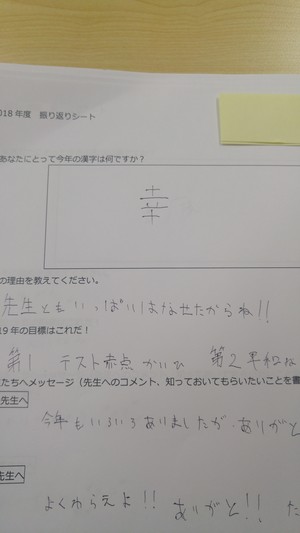 018年度 振り返りシート
あなたにとって今年の漢字は何ですか?
幸
の理由を教えてください。
先生ともいっぱいはなせたからね!!
19年の目標はこれだ!
第1 テスト赤点かいひ 第2 平和な
たちへメッセージ(先生へのコメント、知っておいてもらいたいことを書
先生へ
今年もいろいろありましたが、ありがと
先生へ
よくわらえよ!! ありがと!! た